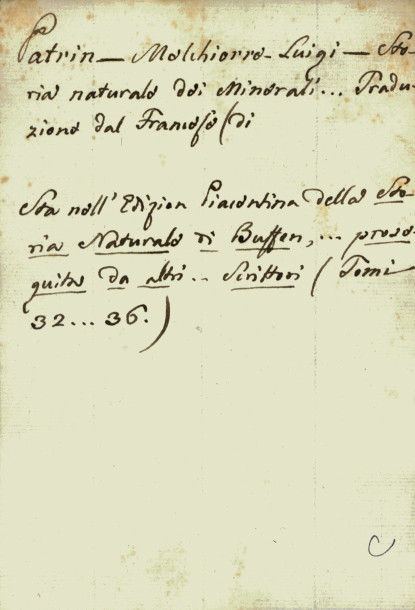 Patrin — Melchiorre Luigi — Sto-
ria naturale dei Minerali... Tradu-
zione dal Francese (di
Sta nell' Edizion Piacentina della Sto-
ria Naturale di Buffon, ... prose-
guita da altri... Scrittori (Tomi
32... 36.)
C